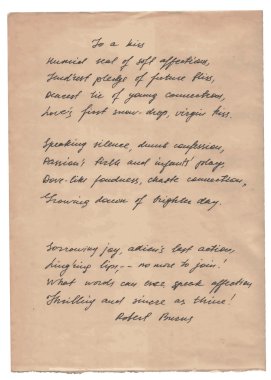 To a kiss
Humid seal of soft affections,
Tend'rest pledge of future bliss,
Dearest tie of young connections,
Love's first snow-drop, virgin kiss.
Speaking silence, dumb confession,
Passion's birth and infants' play
Dove-like fondness, chaste connection,
Growing dawn of brighter day.
Sorrowing joy, adieu's last action,
Ling'ring lips, -- no more to join!
What words can ever speak affection
Thrilling and sincere as thine!
Robert Burns